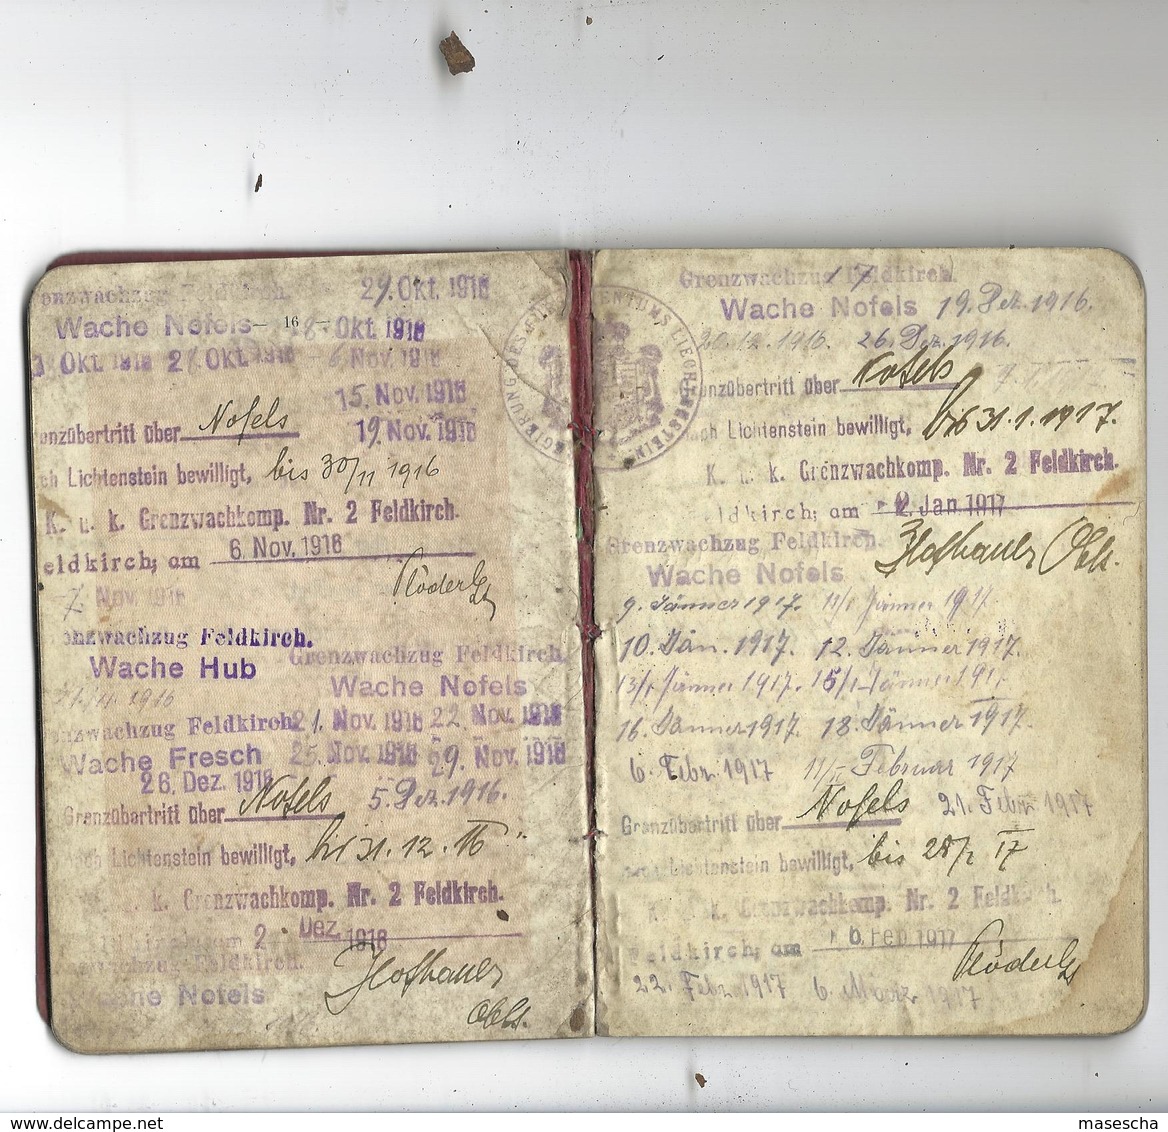 enzwachzug Feldkirch. 29. Okt. 1916
Wache Nofels — 16 — Okt. 1916
Okt. 1916 Okt. 1916 6 Nov. 1916
15. Nov. 1916
enzübertritt über Nofels 19. Nov. 1916
ch Lichtenstein bewilligt, bis 30/11 1916
K. u. k. Grenzwachkomp. Nr. 2 Feldkirch.
eldkirch; am 6. Nov. 1916
7. Nov. 1916
enzwachzug Feldkirch.
Wache Hub
Grenzwachzug Feldkirch.
Wache Nofels
1916
nzwachzug Feldkirch 21. Nov. 1916 22. Nov. 1916
Wache Fresch 25. Nov. 1916 29. Nov. 1916
26. Dez. 1916
Grenzübertritt über Nofels 5. Dez. 1916.
nach Lichtenstein bewilligt, bis 31. 12. 16
k. Grenzwachkomp. Nr. 2 Feldkirch.
am 2. Dez. 1916
wachzug Feldkirch. Hofbauer
Wache Nofels
REGIERUNG DES FÜRSTENTUMS LIECHTENSTEIN
17
Grenzwachzug Feldkirch.
Wache Nofels 19. Dez. 1916.
20.12.1916. 26. Dez. 1916.
nzübertritt über Nofels
nach Lichtenstein bewilligt, bis 31.1.1917.
K. u. k. Grenzwachkomp. Nr. 2 Feldkirch.
eldkirch; am 2. Jan 1917
Grenzwachzug Feldkirch. Hofbauer
Wache Nofels
9. Jänner 1917. 11/1 Jänner 1917
10. Jän. 1917. 12. Jänner 1917.
13/1 Jänner 1917. 15/1 Jänner 1917
16. Jänner 1917. 18. Jänner 1917.
6. Febr. 1917 11/II Februar 1917
21. Febr 1917
Grenzübertritt über Nofels
nach Lichtenstein bewilligt, bis 28/2 17
K. u. k. Grenzwachkomp. Nr. 2 Feldkirch.
Feldkirch; am 6. Feb 1917
22. Febr. 1917 6. März 1917
www.delcampe.net
masescha